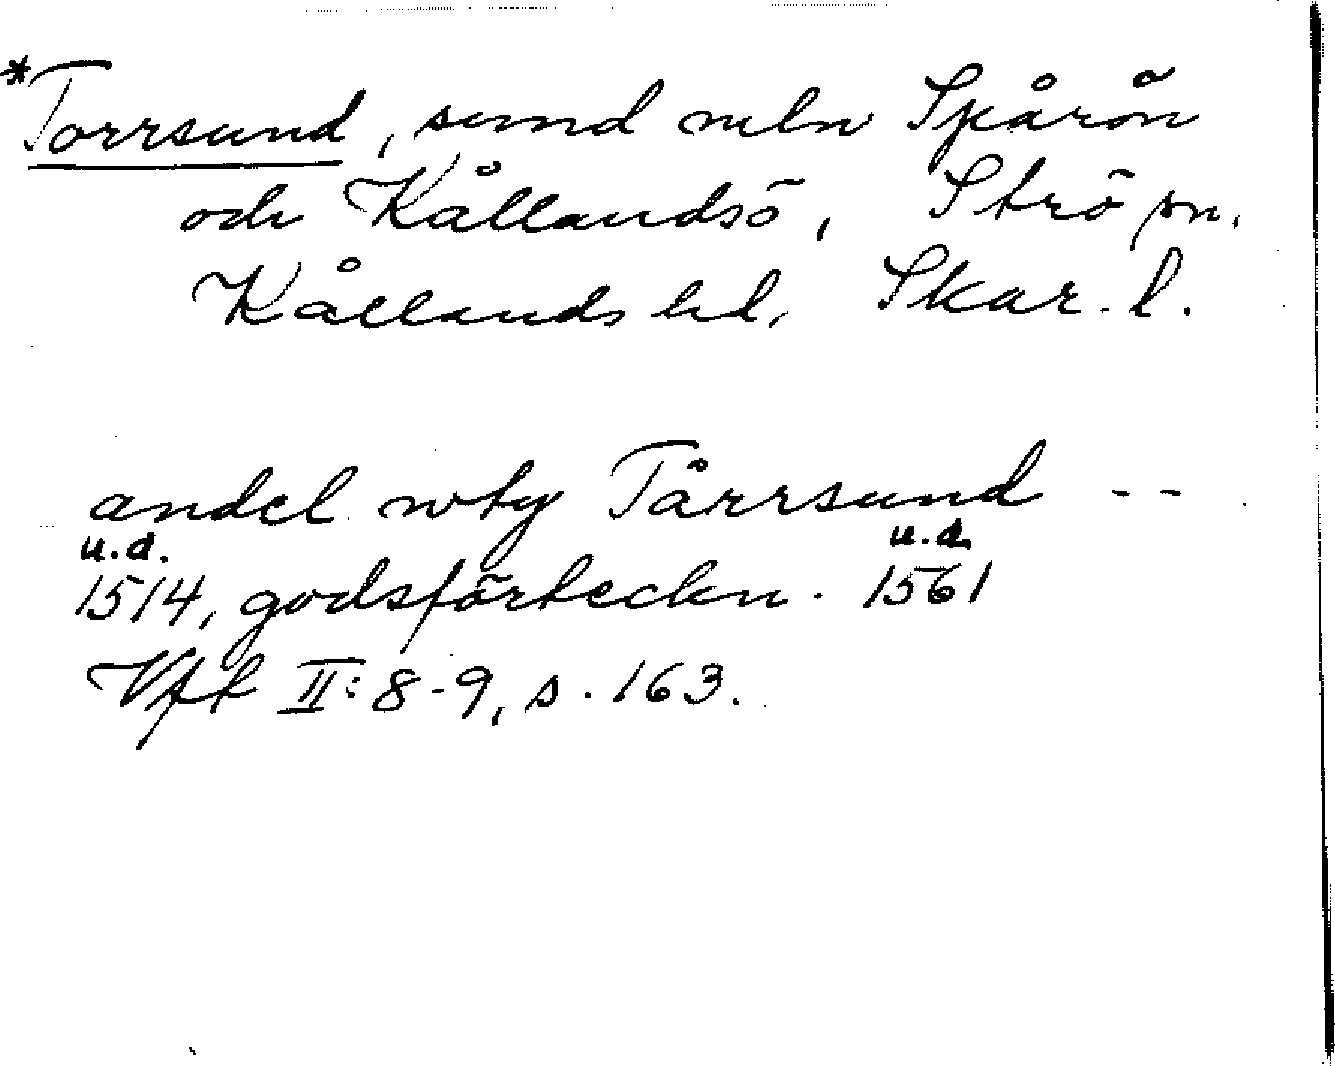 *Torrsund, sund mln Spårön
och Kållandsö, Strö sn.
Kållands hd, Skar. l.
andel wty Tårrsund --
u.d. u.d.
1514, godsförteckn. 1561
Vft II: 8-9, s. 163.